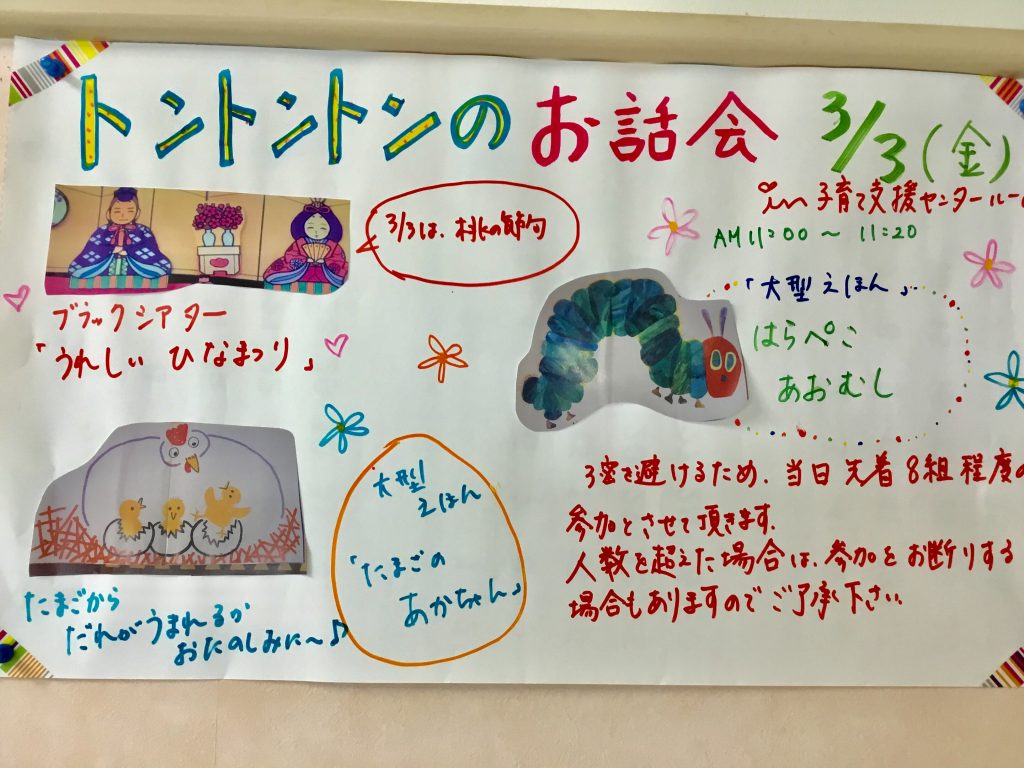 トントントンのお話会 3/3(金)
in 子育て支援センタールー
AM11:00〜11:20
3/3は、桃の節句
ブラックシアター
「うれしい ひなまつり」
「大型えほん」
はらぺこ
あおむし
大型
えほん
「たまごの
あかちゃん」
たまごから
だれがうまれるか
おたのしみに〜♪
3密を避けるため、当日先着8組程度の
参加とさせて頂きます。
人数を超えた場合は、参加をお断りする
場合もありますのでご了承下さい